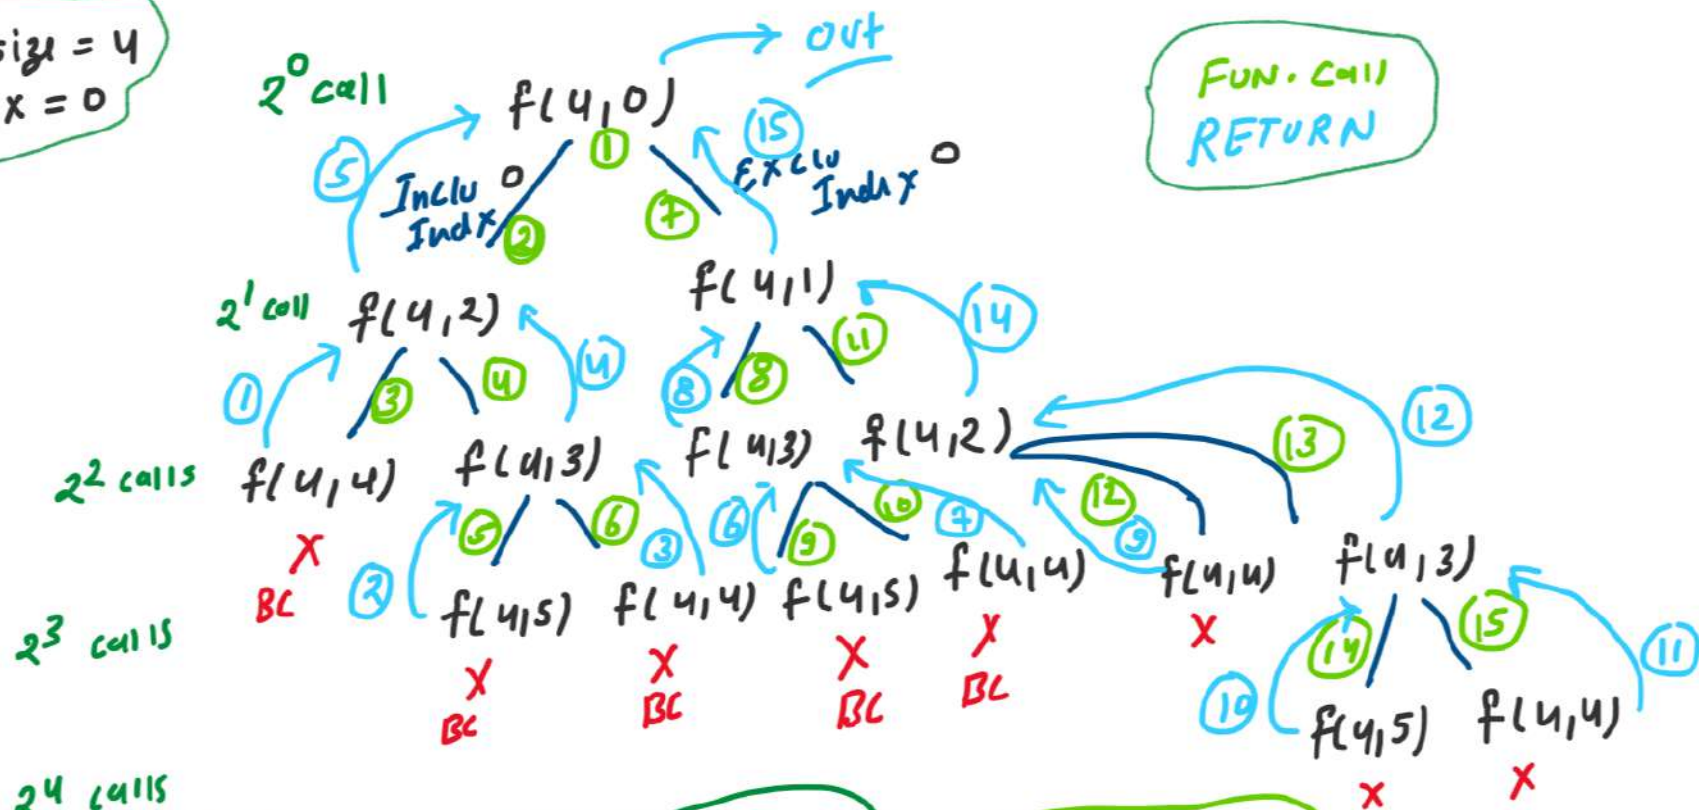 size = 4
x = 0
2^0 call
f(4,0)
out
FUN. Call
RETURN
1
15
5
Inclu 0
Indx
2
7
Exclu 0
Indx
2^1 call
f(4,2)
f(4,1)
14
1
3
4
4
8
8
11
12
2^2 calls
f(4,4)
f(4,3)
f(4,3)
f(4,2)
13
X
BC
2
5
6
3
6
9
10
7
12
9
2^3 calls
f(4,5)
f(4,4)
f(4,5)
f(4,4)
f(4,4)
f(4,3)
X
BC
X
BC
X
BC
X
BC
X
14
15
10
11
f(4,5)
f(4,4)
X
X
2^4 calls